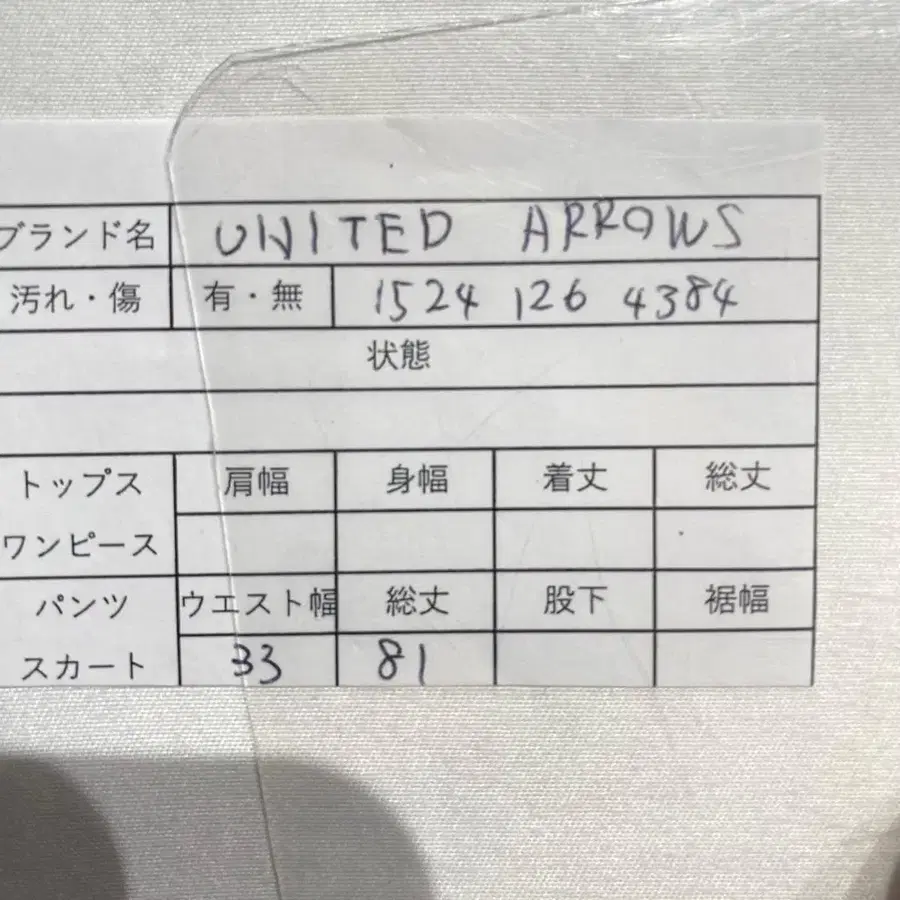 ブランド名 UNITED ARROWS
汚れ・傷 有・無 1524 126 4384
状態
トップス 肩幅 身幅 着丈 総丈
ワンピース
パンツ ウエスト幅 総丈 股下 裾幅
スカート 33 81